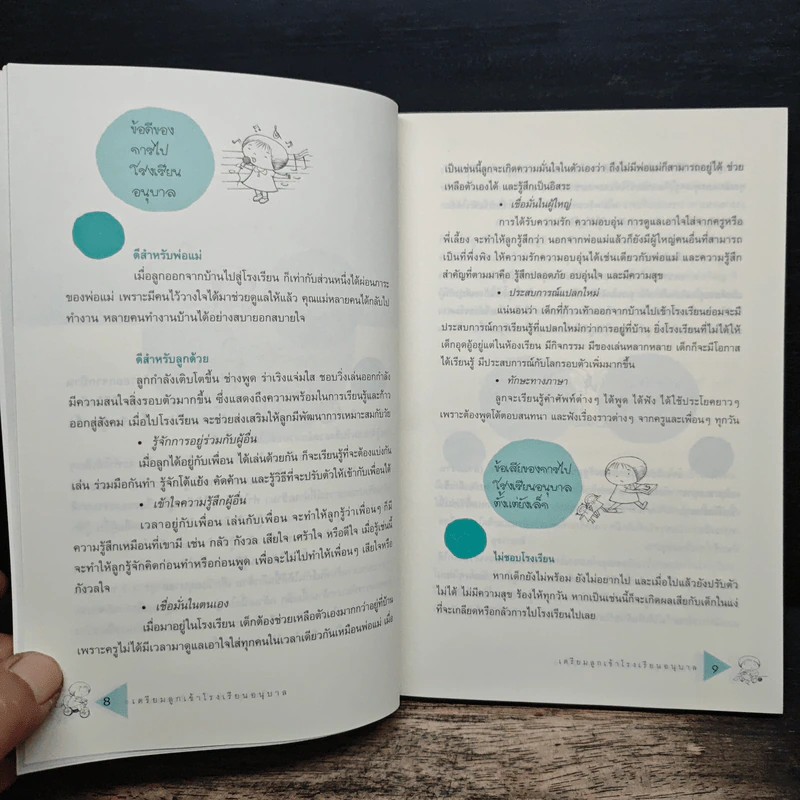 ข้อดีของ
การไป
โรงเรียน
อนุบาล
ดีสำหรับพ่อแม่
เมื่อลูกออกจากบ้านไปสู่โรงเรียน ก็เท่ากับส่วนหนึ่งได้ผ่อนภาระ
ของพ่อแม่ เพราะมีคนไว้วางใจได้มาช่วยดูแลให้แล้ว คุณแม่หลายคนได้กลับไป
ทำงาน หลายคนทำงานบ้านได้อย่างสบายอกสบายใจ
ดีสำหรับลูกด้วย
ลูกกำลังเติบโตขึ้น ช่างพูด ร่าเริงแจ่มใส ชอบวิ่งเล่นออกกำลัง
มีความสนใจสิ่งรอบตัวมากขึ้น ซึ่งแสดงถึงความพร้อมในการเรียนรู้และก้าว
ออกสู่สังคม เมื่อไปโรงเรียน จะช่วยส่งเสริมให้ลูกมีพัฒนาการเหมาะสมกับวัย
• รู้จักการอยู่ร่วมกับผู้อื่น
เมื่อลูกได้อยู่กับเพื่อน ได้เล่นด้วยกัน ก็จะเรียนรู้ที่จะต้องแบ่งกัน
เล่น ร่วมมือกันทำ รู้จักโต้แย้ง คัดค้าน และรู้วิธีที่จะปรับตัวให้เข้ากับเพื่อนได้
• เข้าใจความรู้สึกผู้อื่น
เวลาอยู่กับเพื่อน เล่นกับเพื่อน จะทำให้ลูกรู้ว่าเพื่อนๆ ก็มี
ความรู้สึกเหมือนที่เขามี เช่น กลัว กังวล เสียใจ เศร้าใจ หรือดีใจ เมื่อรู้เช่นนี้
จะทำให้ลูกรู้จักคิดก่อนทำหรือก่อนพูด เพื่อจะไม่ไปทำให้เพื่อนๆ เสียใจหรือ
กังวลใจ
• เชื่อมั่นในตนเอง
เมื่อมาอยู่ในโรงเรียน เด็กต้องช่วยเหลือตัวเองมากกว่าอยู่ที่บ้าน
เพราะครูไม่ได้มีเวลามาดูแลเอาใจใส่ทุกคนในเวลาเดียวกันเหมือนพ่อแม่ เมื่อ
8 เตรียมลูกเข้าโรงเรียนอนุบาล
เป็นเช่นนี้ลูกจะเกิดความมั่นใจในตัวเองว่า ถึงไม่มีพ่อแม่ก็สามารถอยู่ได้ ช่วย
เหลือตัวเองได้ และรู้สึกเป็นอิสระ
• เชื่อมั่นในผู้ใหญ่
การได้รับความรัก ความอบอุ่น การดูแลเอาใจใส่จากครูหรือ
พี่เลี้ยง จะทำให้ลูกรู้สึกว่า นอกจากพ่อแม่แล้วก็ยังมีผู้ใหญ่คนอื่นที่สามารถ
เป็นที่พึ่งพิง ให้ความรักความอบอุ่นได้เช่นเดียวกับพ่อแม่ และความรู้สึก
สำคัญที่ตามมาคือ รู้สึกปลอดภัย อบอุ่นใจ และมีความสุข
• ประสบการณ์แปลกใหม่
แน่นอนว่า เด็กที่ก้าวเท้าออกจากบ้านไปเข้าโรงเรียนย่อมจะมี
ประสบการณ์การเรียนรู้ที่แปลกใหม่กว่าการอยู่ที่บ้าน ยิ่งโรงเรียนที่ไม่ได้ให้
เด็กอุดอู้อยู่แต่ในห้องเรียน มีกิจกรรม มีของเล่นหลากหลาย เด็กก็จะมีโอกาส
ได้เรียนรู้ มีประสบการณ์กับโลกรอบตัวเพิ่มมากขึ้น
• ทักษะทางภาษา
ลูกจะเรียนรู้คำศัพท์ต่างๆ ได้พูด ได้ฟัง ได้ใช้ประโยคยาวๆ
เพราะต้องพูดโต้ตอบสนทนา และฟังเรื่องราวต่างๆ จากครูและเพื่อนๆ ทุกวัน
ข้อเสียของการไป
โรงเรียนอนุบาล
ตั้งแต่ยังเล็ก
ไม่ชอบโรงเรียน
หากเด็กยังไม่พร้อม ยังไม่อยากไป และเมื่อไปแล้วยังปรับตัว
ไม่ได้ ไม่มีความสุข ร้องไห้ทุกวัน หากเป็นเช่นนี้ก็จะเกิดผลเสียกับเด็กในแง่
ที่จะเกลียดหรือกลัวการไปโรงเรียนไปเลย
เตรียมลูกเข้าโรงเรียนอนุบาล 9